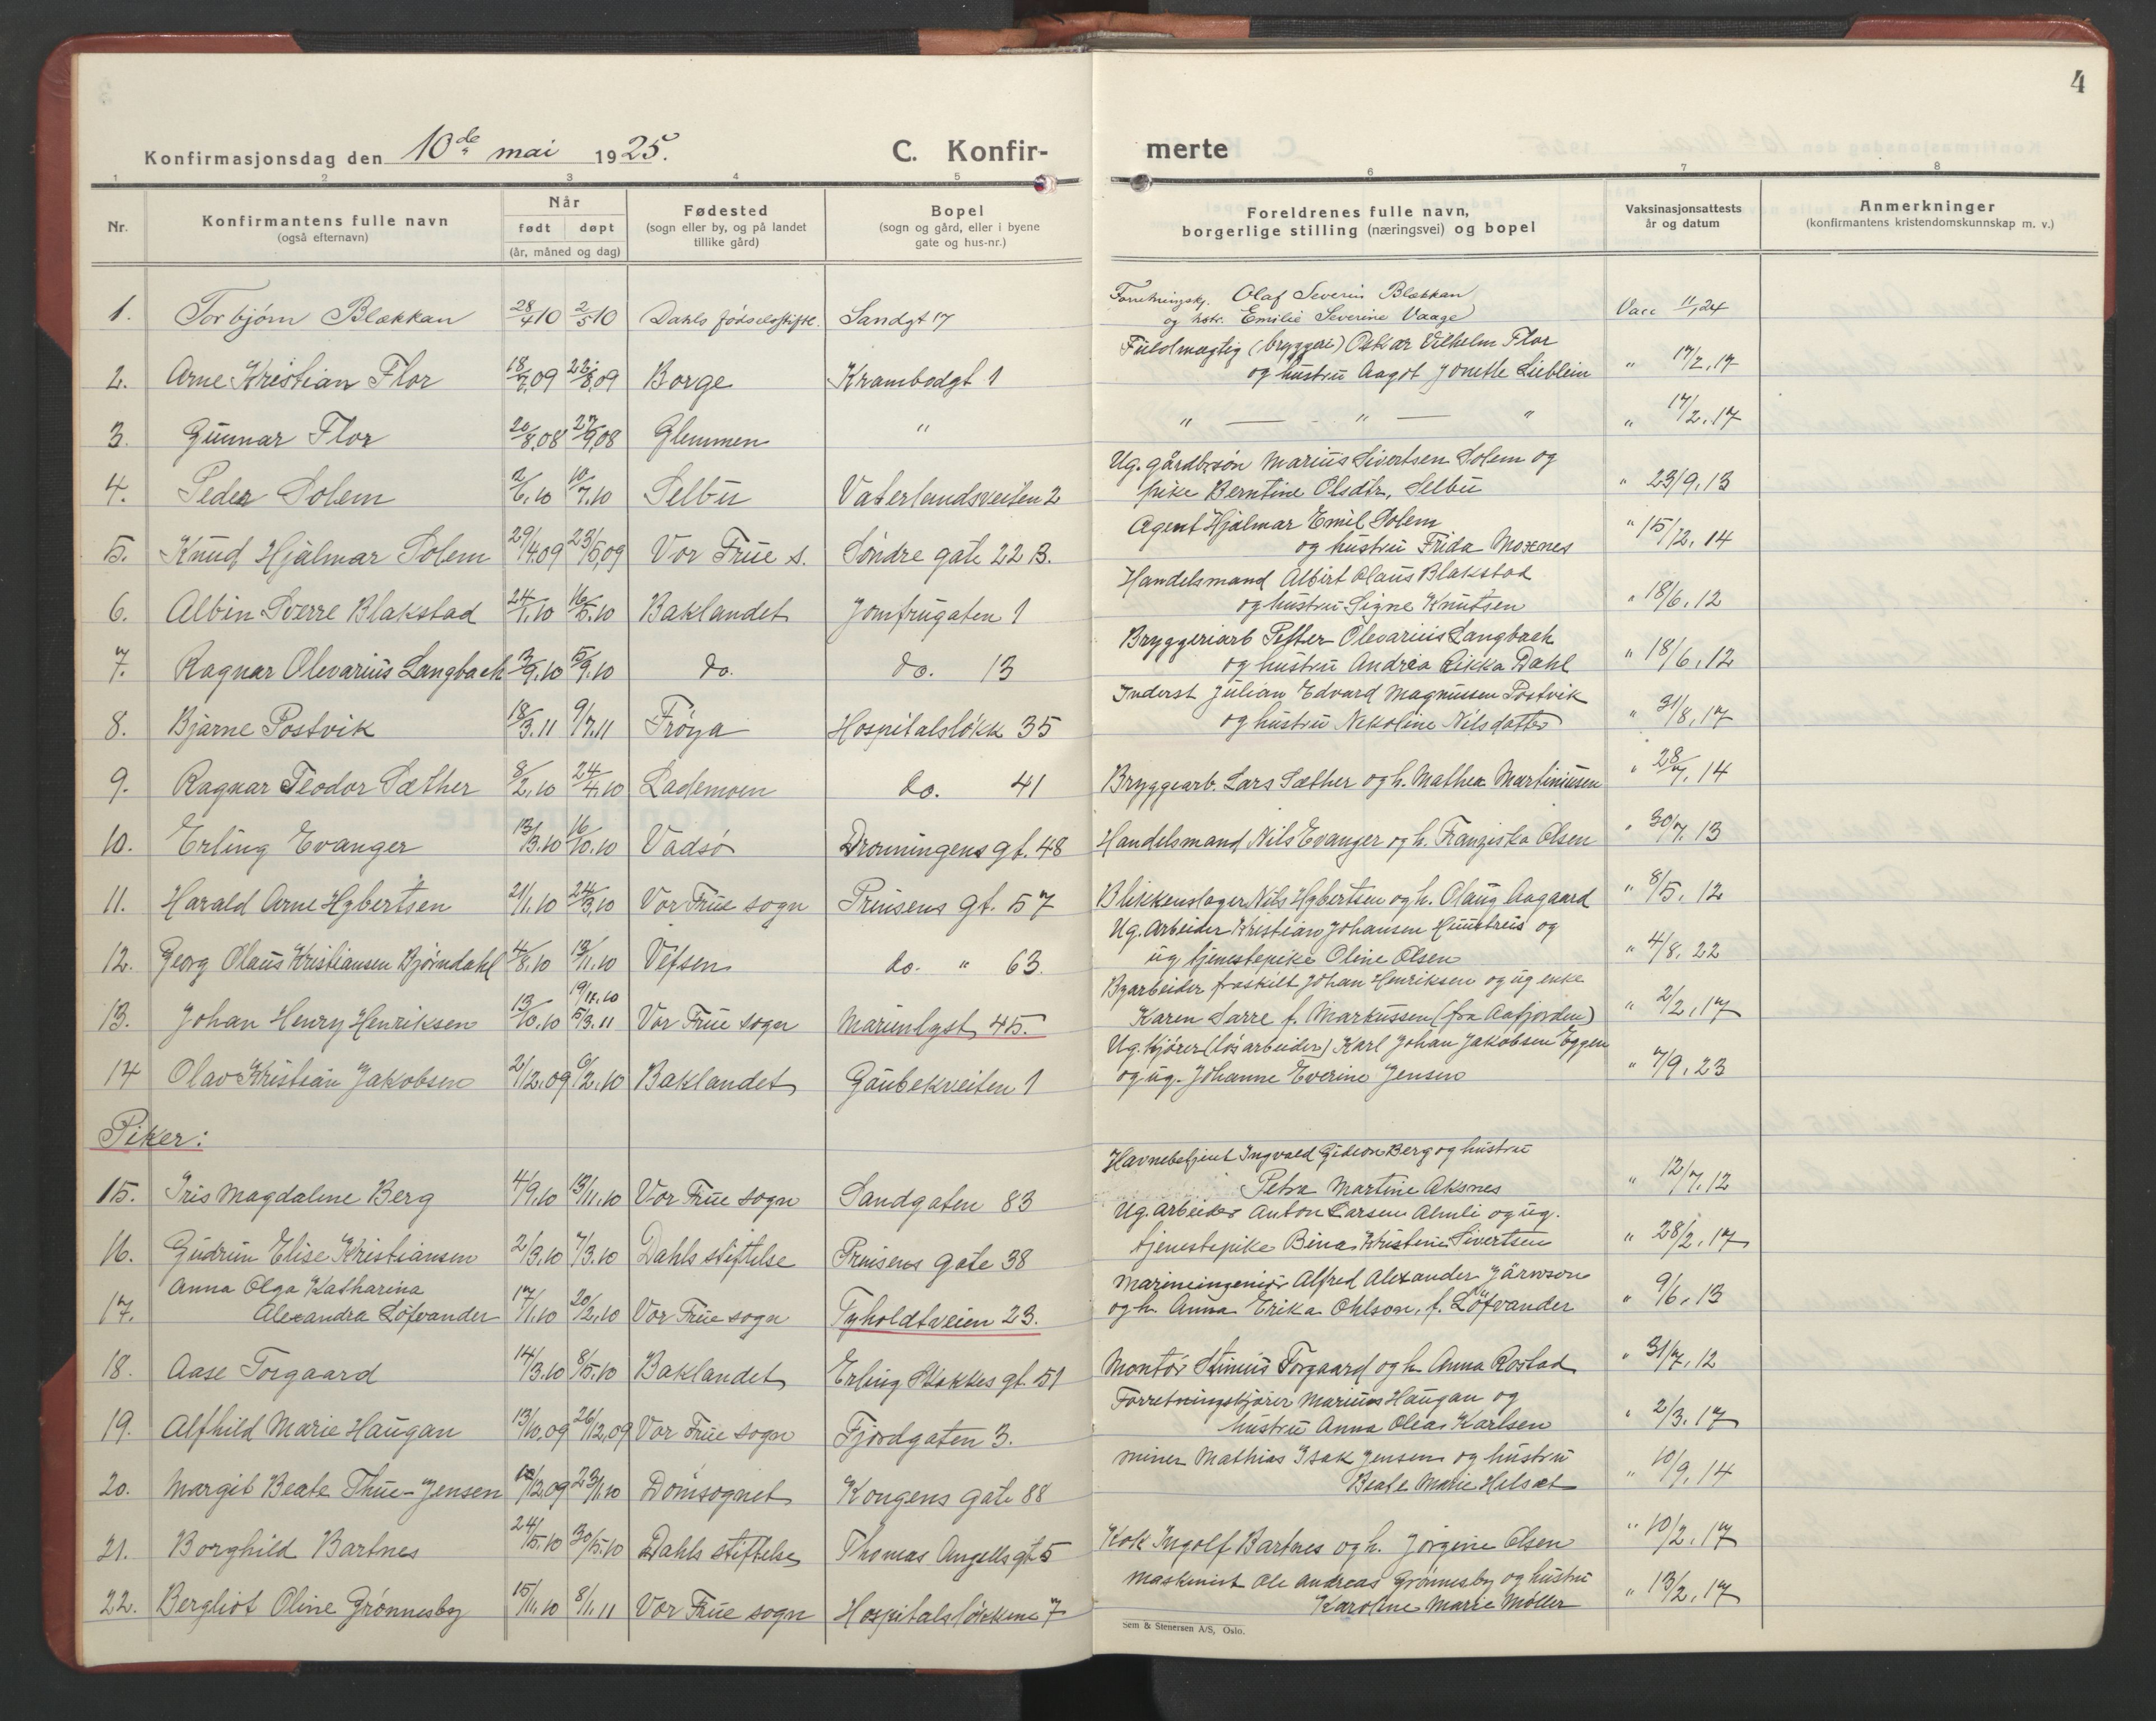 4
Konfirmasjonsdag den 10de mai 1925.
C. Konfir-
merte
1 2 3 4 5 6 7 8
Nr.
Konfirmantens fulle navn
(også efternavn)
Når
født døpt
(år, måned og dag)
Fødested
(sogn eller by, og på landet
tillike gård)
Bopel
(sogn og gård, eller i byene
gate og hus-nr.)
Foreldrenes fulle navn,
borgerlige stilling (næringsvei) og bopel
Vaksinasjonsattests
år og datum
Anmerkninger
(konfirmantens kristendomskunnskap m. v.)
1. Torbjørn Blækkan 28/4 10 2/5 10 Dahls fødselsstift. Sandgt 17
Forretningskj. Olaf Severin Blækkan
og hstr. Emilie Severine Vaage Vacc 11/24
2. Arne Kristian Flor 18/7.09 22/8.09 Borge Krambodgt 1
Fuldmægtig (bryggeri) Oskar Vilhelm Flor
og hustru Aagot Jonette Lieblein " 17/2.17
3. Gunnar Flor 20/8.08 27/9.08 Glemmen "
" — " — " " 17/2.17
4. Peder Solem 2/6.10 10/7.10 Selbu Vaterlandsveiten 2
Ug. gårdbrsøn Marius Sivertsen Solem og
pike Berntine Olsdtr, Selbu " 23/9.13
5. Knud Hjalmar Solem 29/1.09 23/5.09 Vor Frue s. Søndre gate 22 B.
Agent Hjalmar Emil Solem
og hustru Frida Moxnes " 15/12.14
6. Albin Sverre Blakstad 24/1.10 16/5.10 Baklandet Jomfrugaten 1
Handelsmand Albert Olaus Blakstad
og hustru Signe Knutsen " 18/6.12
7. Ragnar Olevarius Langbach 13/9.10 5/9.10 do. do. 13
Bryggeriarb Petter Olevarius Langbach
og hustru Andrea Rikka Dahl " 18/6.12
8. Bjarne Postvik 18/3.11 9/7.11 Frøya Hospitalsløkk 35
Inderst Julian Edvard Magnussen Postvik
og hustru Nekoline Nilsdatter " 31/8.17
9. Ragnar Teodor Sæther 8/2.10 24/4.10 Lademoen do. 41
Bryggearb. Lars Sæther og h. Mathea Martiniusen " 28/7.14
10. Erling Evanger 13/3.10 16/10.10 Vadsø Dronningens gt. 48
Handelsmand Nils Evanger og h. Franziska Olsen " 30/7.13
11. Harald Arne Hybertsen 21/1.10 24/3.10 Vor Frue sogn Prinsens gt. 57
Blikkenslager Nils Hybertsen og h. Olaug Aagaard " 8/5.12
12. Georg Olaus Kristiansen Bjørndahl 4/8.10 13/11.10 Vefsen do. " 63.
Ug. Arbeider Kristian Johansen Hunstreis og
ug tjenestepike Oline Olsen " 4/8.22
13. Johan Henry Henriksen 13/10.10 19/12.10 5/3.11 Vor Frue sogn Marienlyst 45.
Byarbeider fraskilt Johan Henriksen og ug enke
Karen Sarre f. Markussen (fra Aafjorden) " 2/2.17
14 Olav Kristian Jakobsen 21/12.09 6/2.10 Baklandet Gaubekveiten 1
Ug. Kjører (løsarbeider) Karl Johan Jakobsen Eggen
og ug. Johanne Everine Jensen " 7/9.23
Piker:
15. Iris Magdalene Berg 4/9.10 13/11.10 Vor Frue sogn Sandgaten 83
Havnebetjent Ingvald Gideon Berg og hustru
Petra Martine Aksnes " 12/7.12
16. Gudrun Elise Kristiansen 2/3.10 7/3.10 Dahls stiftelse Prinsens gate 38
Ug. arbeider Anton Larsen Almli og ug.
tjenestepike Bina Kristine Sivertsen " 28/2.17
17. Anna Olga Katharina
Alexandra Löfvander 17/1.10 20/2.10 Vor Frue sogn Tyholdtveien 23.
Marineingeniør Alfred Alexander Järnson
og h. Anna Erika Ohlson, f. Löfvander " 9/6.13
18. Aase Torgaard 14/3.10 8/5.10 Baklandet Erling Skakkes gt. 51
Montør Stinius Torgaard og h. Anna Rostad " 31/7.12
19. Alfhild Marie Haugan 13/10.09 26/12.09 Vor Frue sogn Fjordgaten 3.
Forretningskjører Marius Haugan og
hustru Anna Olea Karlsen " 2/3.17
20. Margit Beate Thue-Jensen 10/12.09 23/1.10 Domsognet Kongens gate 88
Miner Mathias Isak Jensen og hustru
Beate Marie Helsæt " 10/9.14
21. Borghild Bartnes 24/5.10 30/5.10 Dahls stiftelse Thomas Angells gt 5
Kok Ingolf Bartnes og h. Jørgine Olsen " 10/2.17
22. Bergliot Oline Grønnesby 15/11.10 8/1.11 Vor Frue sogn Hospitalsløkkene 7
Maskinist Ole Andreas Grønnesby og hustru
Karoline Marie Möller " 13/2.17
Sem & Stenersen A/S, Oslo.